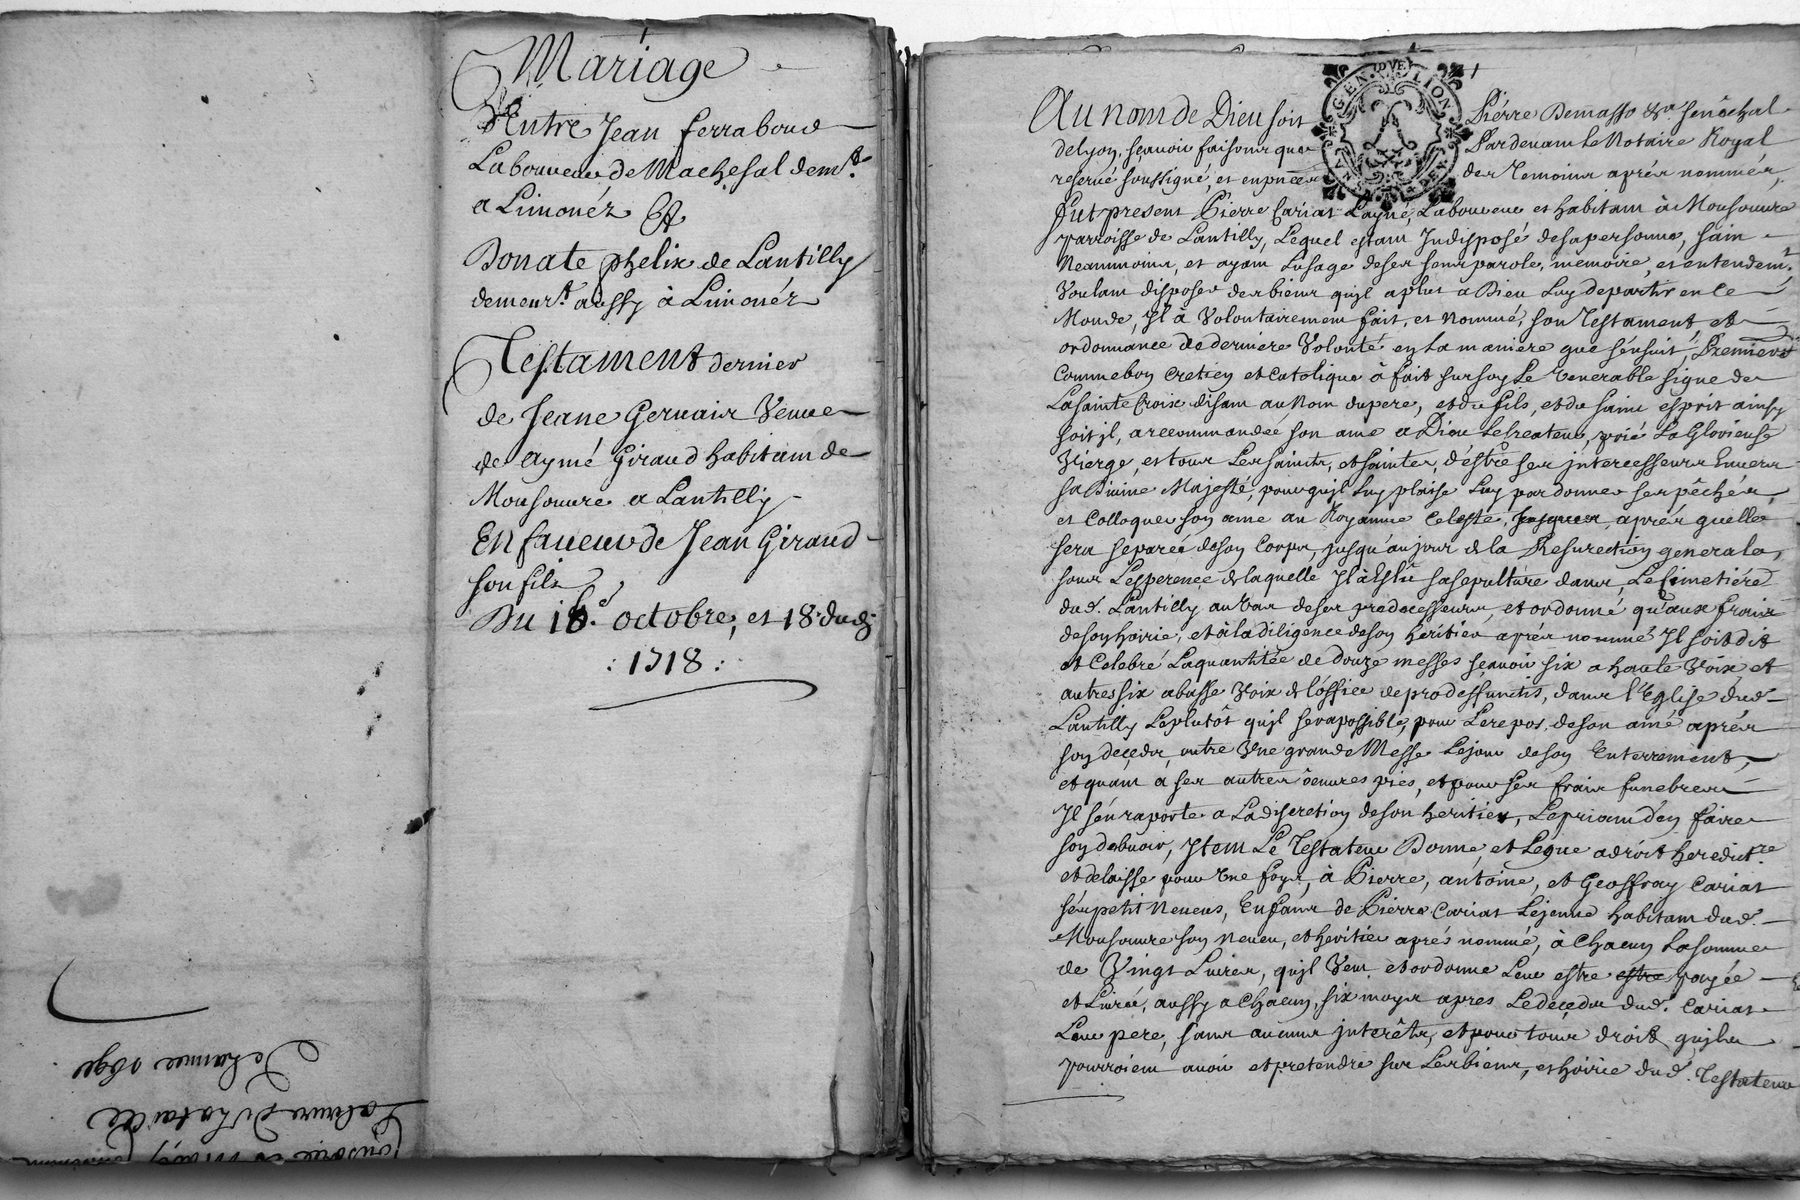 Mariage
Entre Jean ferraboud
Laboureur de Machesal dem.t
a Limonéz Et
Donate phelix de Lantilly
demeur.t aussy à Limonéz
Testament dernier
de Jeane Gervais Veuve
de Aymé Giraud habitant de
Monsouvre a Lantilly
En faveur de Jean Giraud
son fils
Du 16.e octobre, et 18 dud.
: 1718 :
de l'année 1690
GEN. DVE LION
Au nom de Dieu soit Pierre Demasso Sénéchal
de Lyon, sçavoir faisons que Pardevant le Notaire Royal
reservé soussigné, et en présence des Temoins aprés nommés,
fut present Pierre Cariat Layné, Laboureur et habitant à Monsouvre
parroisse de Lantilly, Lequel estant Indisposé de sa personne, sain
Neanmoins, et ayant Lusage de ses sens parole, mémoire, et entendem.t
Voulant disposer des biens quil a plut a Dieu Luy departir en Ce
Monde, Il à Volontairement fait, et nommé, son Testament et
ordonnance de derniere Volonté en La maniere que s'énsuit, Premierem.t
Comme bon Cretien et Catolique à fait sur soy Le Venerable signe de
La sainte Croix disant au Nom du pere, et du fils, et du saint esprit ainsy
soit jl, a recommandee son ame a Dieu Le Createur, prié La Glorieuse
Vierge, et tous Les saints, et saintes, d'éstre ses jntercesseurs Envers
sa Divine Majesté, pour quil Luy plaise Luy pardonner ses pêchés,
et Colloquer son ame au Royaume Celeste, Jusques aprés quelle
sera séparée de son Corps, jusqu'au jour de la Resurection generale,
sous L'esperence de laquelle Il à Eslû sa sepulture dans Le Cimetiére
dud. Lantilly, au Vas de ses predecesseurs, et ordonné qu'aux frais
de son hoirie, et à la diligence de son heritier aprés nommé Il soit dit
et Celebré La quantitée de douze messes sçavoir six a haute Voix et
autres six a basse Voix de l'office de pro deffunctis, dans l'Eglise dud.
Lantilly Le plutôt quil sera possible, pour Le repos de son ame aprés
son deçeds, outre Une grande Messe Le jour de son Enterrement,
et quant a ses autres oeuvres pies, et pour ses frais funebres
Il s'én raporte a La discretion de son heritier, Le priant d'en faire
son debvoir, Item Le Testateur Donne et Legue a droit heredit.re
et delaisse pour Une foys, à Pierre, antoine, et Geoffray Cariat
sés petit Neveus, Enfans de Pierre Cariat Le jeune habitant dud.
Monsouvre son neveu, et heritier aprés nommé, à Chacun La somme
de Vingt Livres, quil Veut et ordonne Leur estre estre payée
et Livrée, aussy a Chacun, six moys apres Le deçeds dud. Cariat
Leur pere, sans aucuns jnterêts, et pour tous droit quils
pourroient avoir et pretendre sur Les biens, et hoirie dud. Testateur